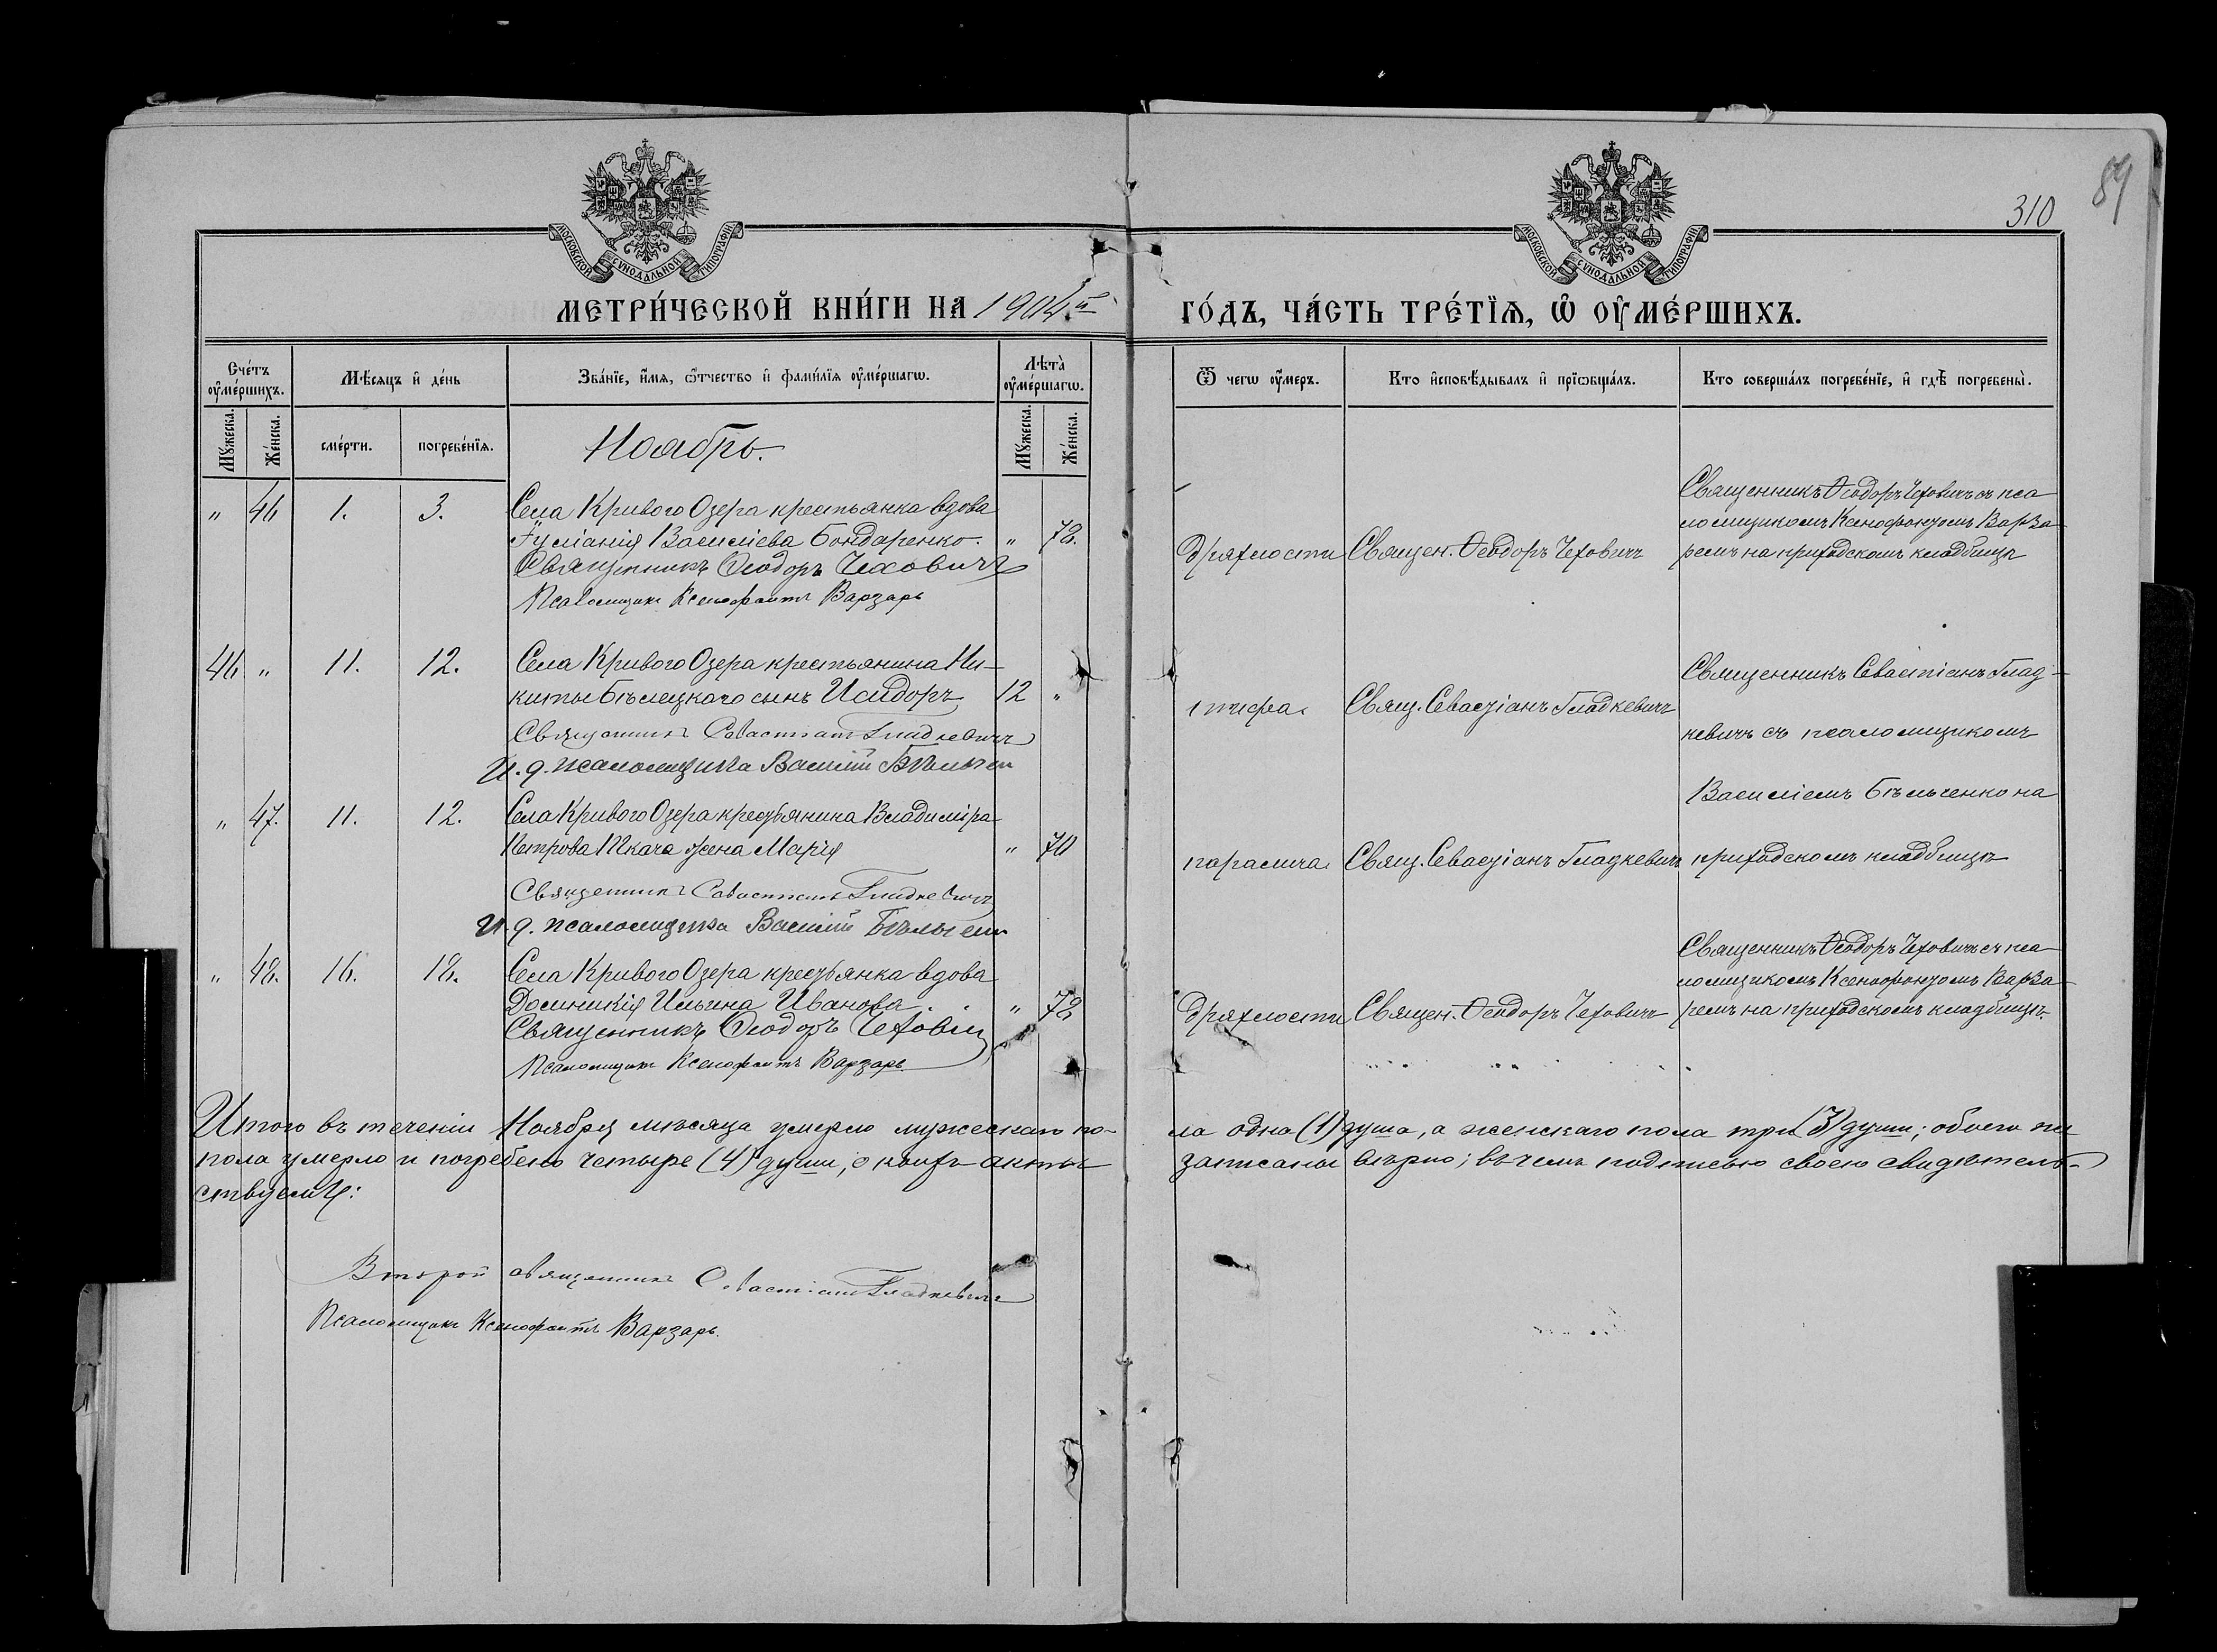 89
310
МОСКОВСКОЙ СѴНОДАЛЬНОЙ ТИПОГРАФІИ
МОСКОВСКОЙ СѴНОДАЛЬНОЙ ТИПОГРАФІИ
МЕТРИ́ЧЕСКОЙ КНИ́ГИ НА 1904й ГО́ДЪ, ЧА́СТЬ ТРЕ́ТЇѦ, Ѽ ОУ҆МЕ́РШИХЪ.
Сче́тъ оу҆ме́ршихъ.
Мѣ́сяцъ и҆ де́нь
Зва́нїе, и҆́мѧ, ѻ҆́тчество и҆ фами́лїѧ оу҆ме́ршагѡ.
Лѣта̀ оу҆ме́ршагѡ.
Ѿ чегѡ оу҆́меръ.
Кто и҆сповѣ́дывалъ и҆ прїѡбща́лъ.
Кто соверша́лъ погребе́нїе, и҆ гдѣ̀ погребены̀.
Мꙋ́жеска.
Же́нска.
сме́рти.
погребе́нїѧ.
Мꙋ́жеска.
Же́нска.
Ноябрь.
" 46 1. 3. Села Кривого Озера крестьянка вдова
Іуліанія Василіева Бондаренко. " 78.
Священникъ Ѳеодоръ Чеховичъ
Псаломщикъ Ксенофонтъ Варзарь
дряхлости
Священ. Ѳеодоръ Чеховичъ
Священникъ Ѳеодоръ Чеховичъ съ пса
ломщикомъ Ксенофонтомъ Варза-
ремъ на приходскомъ кладбищѣ
46 " 11. 12. Села Кривого Озера крестьянина Ни-
киты Бѣлецкаго сынъ Исидоръ 12 "
Священникъ Севастіанъ Гладкевичъ
И. д. псаломщика Василій
тифа.
Свящ. Севастіанъ Гладкевичъ
Священникъ Севастіанъ Глад-
кевичъ съ псаломщикомъ
Василіемъ Бѣльченко на
" 47. 11. 12. Села Кривого Озера крестьянина Владиміра
Петрова Ткача жена Марія " 70
Священникъ Севастіанъ Гладкевичъ
И. д. псаломщика Василій
паралича.
Свящ. Севастіанъ Гладкевичъ
приходскомъ кладбищѣ
" 48. 16. 18. Села Кривого Озера крестьянка вдова
Домникія Ильина Иванова. . . " 78
Священникъ Ѳеодоръ Чеховичъ
Псаломщикъ Ксенофонтъ Варзарь
дряхлости
Священ. Ѳеодоръ Чеховичъ
Священникъ Ѳеодоръ Чеховичъ съ пса
ломщикомъ Ксенофонтомъ Варза-
ремъ на приходскомъ кладбищѣ.
Итого въ теченіи Ноября мѣсяца умерло мужескаго по-
ла одна (1) душа, а женскаго пола три (3) души; обоего
пола умерло и погребено четыре (4) души, о коихъ акты
записаны вѣрно; въ чемъ подписью своею свидѣтель-
ствуемъ:
Второй священникъ Севастіанъ Гладкевичъ
Псаломщикъ Ксенофонтъ Варзарь.